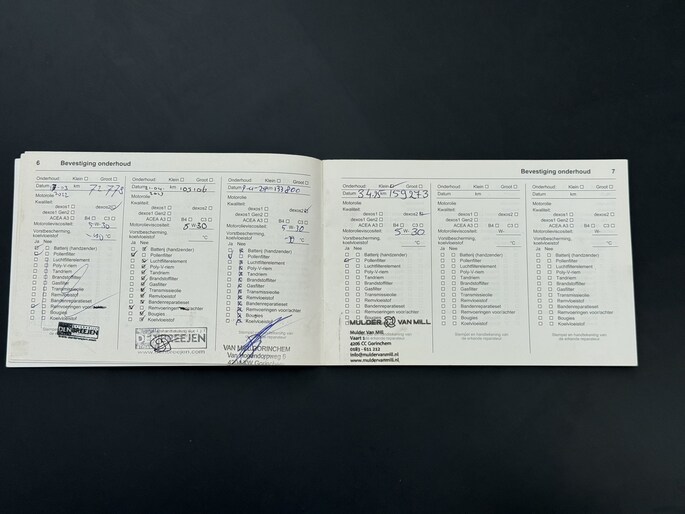 6 Bevestiging onderhoud
Onderhoud: Klein Groot
Datum km 72775
Motorolie
Kwaliteit:
dexos1 dexos2
dexos1 Gen2
ACEA A3 B4 C3
Motorolieviscositeit: 5w30
Vorstbescherming,
koelvloeistof:
Ja Nee
Batterij (handzender)
Pollenfilter
Luchtfilterelement
Poly-V-riem
Tandriem
Brandstoffilter
Gasfilter
Transmissieolie
Remvloeistof
Bandenreparatieset
Remvoeringen voor/achter
Bougies
Koelvloeistof
Onderhoud: Klein Groot
Datum km 103106
2023
dexos1 dexos2
dexos1 Gen2
ACEA A3 B4 C3
5w30
koelvloeistof: °C
Ja Nee
Batterij (handzender)
Pollenfilter
Luchtfilterelement
Poly-V-riem
Tandriem
Brandstoffilter
Gasfilter
Transmissieolie
Remvloeistof
Bandenreparatieset
Remvoeringen voor/achter
Bougies
Koelvloeistof
Onderhoud: Klein Groot
Datum km 133800
dexos1 dexos2
dexos1 Gen2
ACEA A3 B4 C3
5w30
°C
Ja Nee
Batterij (handzender)
Pollenfilter
Luchtfilterelement
Poly-V-riem
Tandriem
Brandstoffilter
Gasfilter
Transmissieolie
Remvloeistof
Bandenreparatieset
Remvoeringen voor/achter
Bougies
Koelvloeistof
VAN MILL GORINCHEM
Bevestiging onderhoud 7
Onderhoud: Klein Groot
Datum km 159273
Motorolie
Kwaliteit:
dexos1 dexos2
dexos1 Gen2
ACEA A3 B4 C3
Motorolieviscositeit: 5w30
Vorstbescherming,
koelvloeistof: °C
Ja Nee
Batterij (handzender)
Pollenfilter
Luchtfilterelement
Poly-V-riem
Tandriem
Brandstoffilter
Gasfilter
Transmissieolie
Remvloeistof
Bandenreparatieset
Remvoeringen voor/achter
Bougies
Koelvloeistof
MULDER VAN MILL
Mulder Van Mill
Vaart 1
4206 CC Gorinchem
0183 - 611 212
info@muldervanmill.nl
www.muldervanmill.nl
Onderhoud: Klein Groot
Datum km
Motorolie
Kwaliteit:
dexos1 dexos2
dexos1 Gen2
ACEA A3 B4 C3
Motorolieviscositeit: W-
Vorstbescherming,
koelvloeistof: °C
Ja Nee
Batterij (handzender)
Pollenfilter
Luchtfilterelement
Poly-V-riem
Tandriem
Brandstoffilter
Gasfilter
Transmissieolie
Remvloeistof
Bandenreparatieset
Remvoeringen voor/achter
Bougies
Koelvloeistof
Stempel en handtekening van
de erkende reparateur
Onderhoud: Klein Groot
Datum km
Motorolie
Kwaliteit:
dexos1 dexos2
dexos1 Gen2
ACEA A3 B4 C3
Motorolieviscositeit: W-
Vorstbescherming,
koelvloeistof: °C
Ja Nee
Batterij (handzender)
Pollenfilter
Luchtfilterelement
Poly-V-riem
Tandriem
Brandstoffilter
Gasfilter
Transmissieolie
Remvloeistof
Bandenreparatieset
Remvoeringen voor/achter
Bougies
Koelvloeistof
Stempel en handtekening van
de erkende reparateur